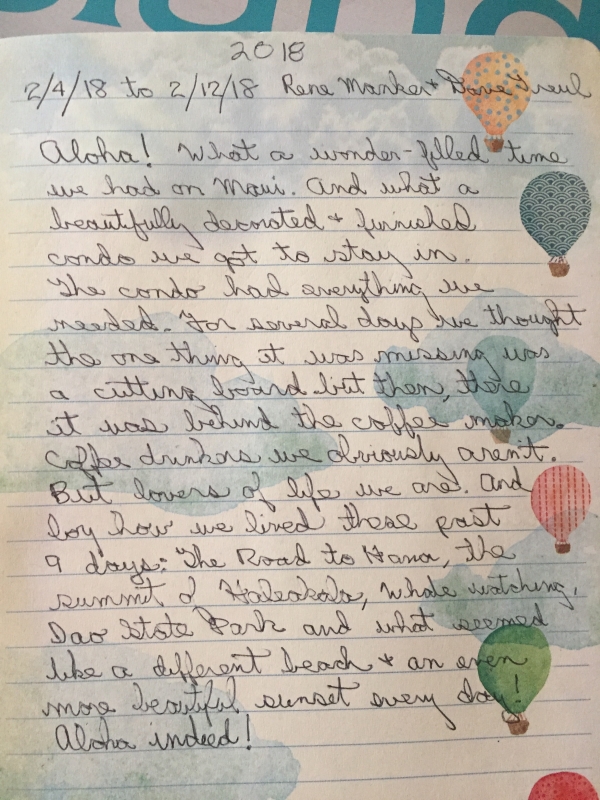 2018
2/4/18 to 2/12/18 Rene Manker + Dave
Aloha! What a wonder-filled time
we had on Maui. And what a
beautifully decorated + furnished
condo we got to stay in.
The condo had everything we
needed. For several days we thought
the one thing it was missing was
a cutting board but then, there
it was behind the coffee maker.
Coffee drinkers we obviously aren't.
But lovers of life we are. And
boy how we lived these past
9 days: The Road to Hana, the
summit of Haleakala, whale watching,
Iao State Park and what seemed
like a different beach + an even
more beautiful sunset every day!
Aloha indeed!